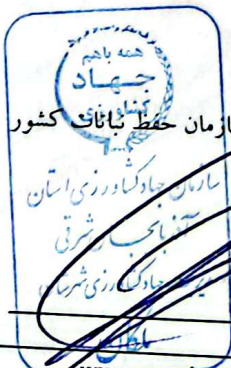 همه باهم
جهاد
کشاورزی
سازمان حفظ نباتات کشور
سازمان جهاد کشاورزی استان
آذربایجان شرقی
مدیریت جهاد کشاورزی شهرستان